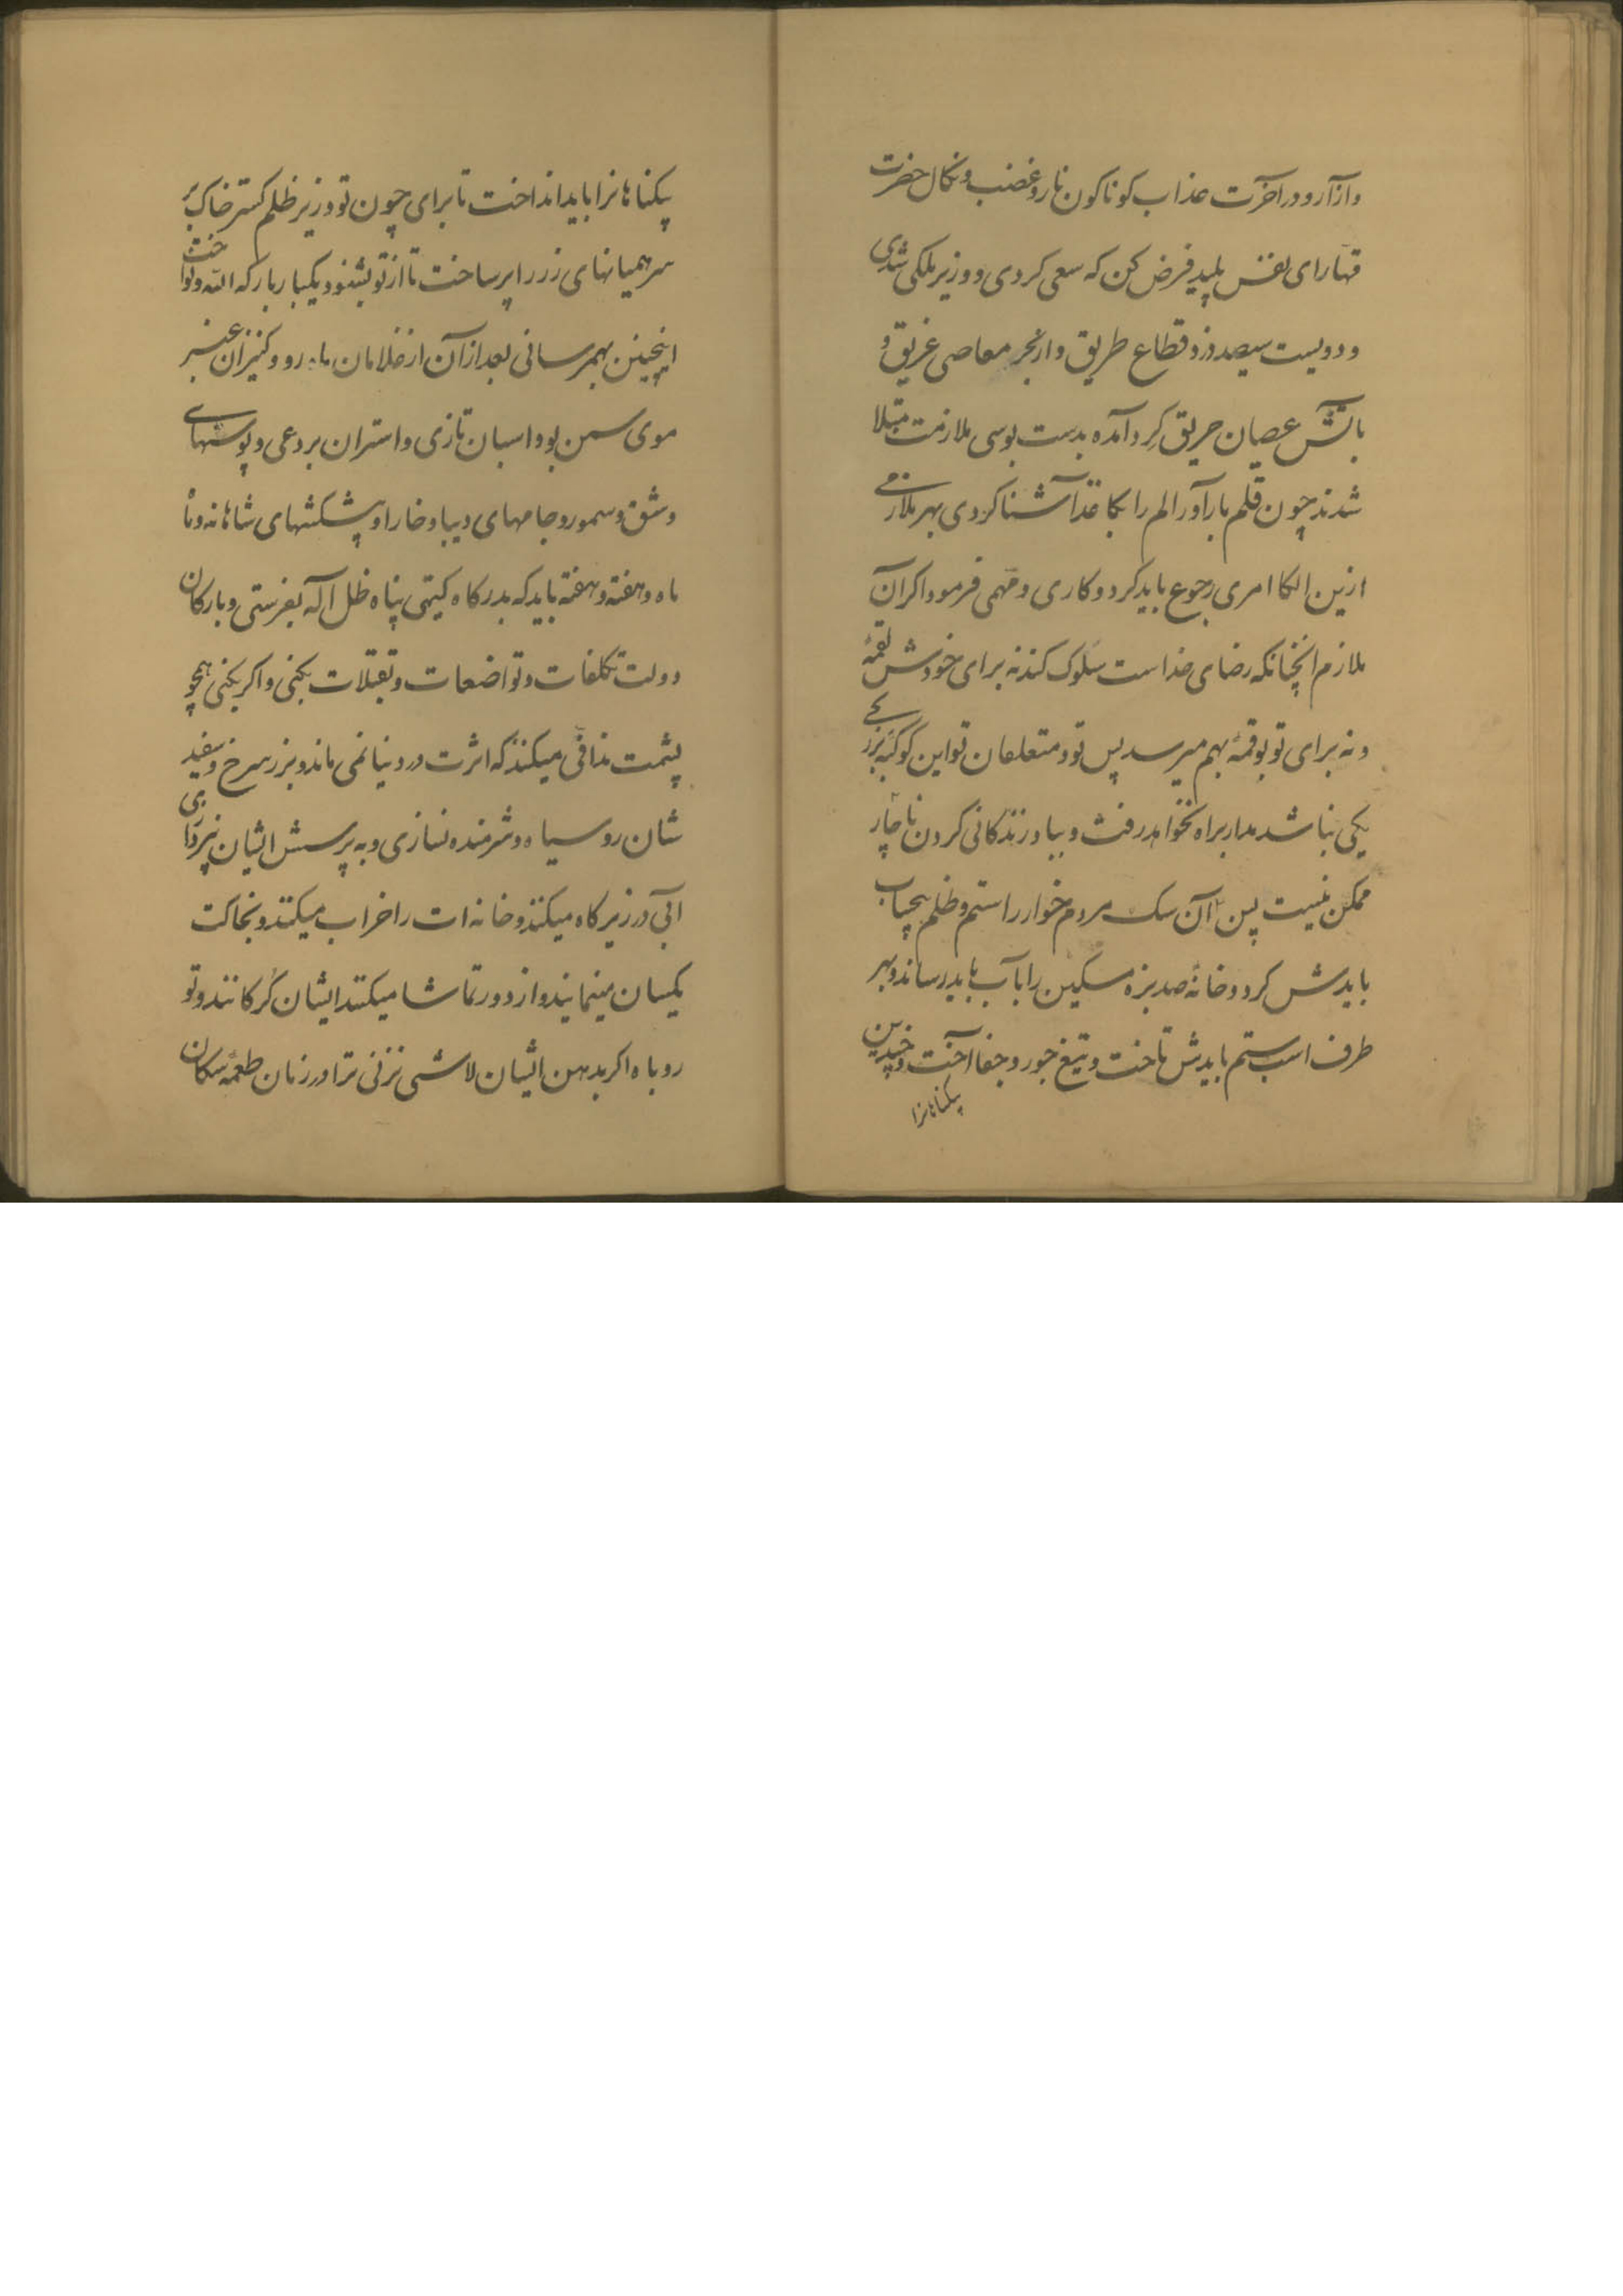 و از آرو در آخرت عذاب کوناکون نار و غضب و نکال حضرت
قهار ای نفس پلید فرض کن که سعی کردی و وزیر ملکی شدی
و دویست سیصد دزد قطاع طریق و از بحر معاصی غریق و
بآتش عصیان حریق کرد آمده بدست بوسی ملازمت مبتلا
شدند چون قلم بار آور الم را بکاغذ آشنا کردی بهر ملازمی
ازین الکا امری رجوع باید کرد و کاری و مهمی فرمود اکر آن
ملازم آنچنانکه رضای خداست سلوک کند نه برای خودش لقمهٔ
و نه برای تو بوقمهٔ بهم میرسد پس تو و متعلقان تو این کوکبه بزرکی
یکی نباشد مدار براه نخواهد رفت و بباد زندکانی کردن ناچار
ممکن نیست پس آن سک مردم خوار را ستم و ظلم بیحساب
بایدش کرد و خانهٔ صد بزه مسکین را بآب باید رساند و بهر
طرف اسب ستم بایدش تاخت و تیغ جور و جفا آخت و چندین
بیکناهانرا
بیکناهانرا باید انداخت تا برای چون تو وزیر ظلم کستر خاک بر
سر همیانهای زر را پر ساخت تا از تو بشنود یکبار بارکه الله و لواخت
اینچنین بهمرسانی بعد از آن از غلامان ماه رو و کنیزان عنبر
موی سمن بو و اسبان تازی و استران بردعی و پوستهای
وشق و سمور و جامهای دیبا و خارا و پیشکشهای شاهانه و ماه
ماه و هفته و هفته باید که بدرکاه کیتی پناه ظل آله بفرستی و بارکان
دولت تکلفات و تواضعات و تقبلات بکنی و اکر نکنی همچو
پشمت ندافی میکنند که اثرت در دنیا نمی ماند و بزر سرخ و سفید
شان رو سیاه و شرمنده نسازی و به پرسش ایشان نپردازی
آبی در زیر کاه میکنند و خانه ات را خراب میکنند و بخاکت
یکسان مینمایند و از دور تماشا میکنند ایشان کرکانند و تو
روباه اکر بدهن ایشان لاشی نزنی ترا در زمان طعمهٔ سکان